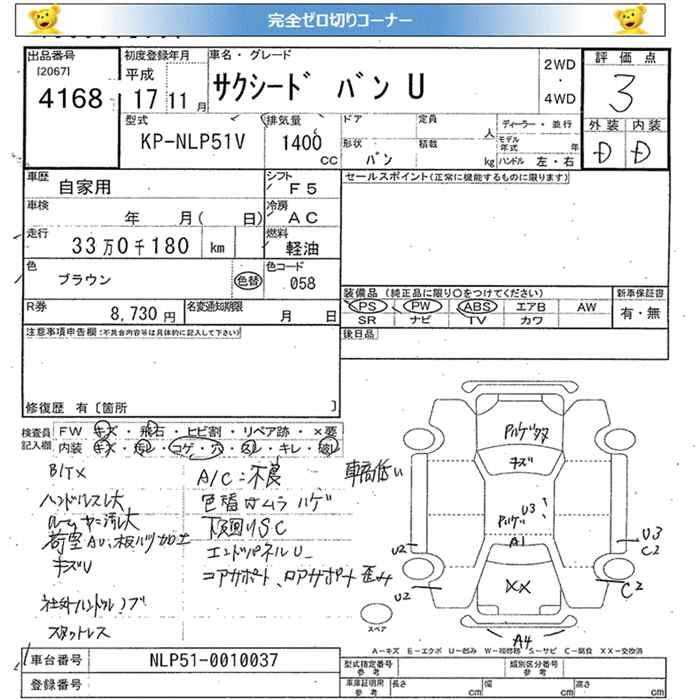 完全ゼロ切りコーナー
出品番号 初度登録年月 車名・グレード 2WD・4WD 評価点
[2067] 平成
4168 17 11月 サクシード バン U 3
型式 排気量 ドア 定員 人 ディーラー・並行 外装 内装
KP-NLP51V 1400 cc 形状 積載 モデル年式 年 D D
バン kg ハンドル 左・右
車歴 自家用 シフト F5 セールスポイント(正常に機能するものに限ります)
車検 年 月( 日) 冷房 AC
走行 33万0千180 km 燃料 軽油
色 ブラウン 色替 色コード 058
装備品 (純正品に限り○をつけてください) 新車保証書
R券 8,730円 名変通知期限 月 日 PS PW ABS エアB AW 有・無
SR ナビ TV カワ
注意事項申告欄(不具合内容等は具体的に記入して下さい) 後日品
修復歴 有〔箇所 〕
検査員記入欄 FW キズ・飛石・ヒビ割・リペア跡・×要
内装 キズ・汚レ・コゲ・穴・スレ・キレ・破レ
BITX A/C:不良 車高低い
ハンドルスレ大 色替はムラ ハゲ
ルーム ヤニ汚レ大 下回りSC
荷室AU、板バリ加工 エンドパネルU
キズU コアサポート、ロアサポート歪み
社外ハンドル、ノブ
スタットレス
キズ
U3
A1
U2 U3
C2
XX
U2 C2
A4
スペア
A-キズ E-エクボ U-凹み W-補修跡 S-サビ C-腐食 XX-交換済
車台番号 NLP51-0010037 型式指定番号 参考 類別区分番号 参考
登録番号 車庫証明用 参考 長さ cm 幅 cm 高さ cm